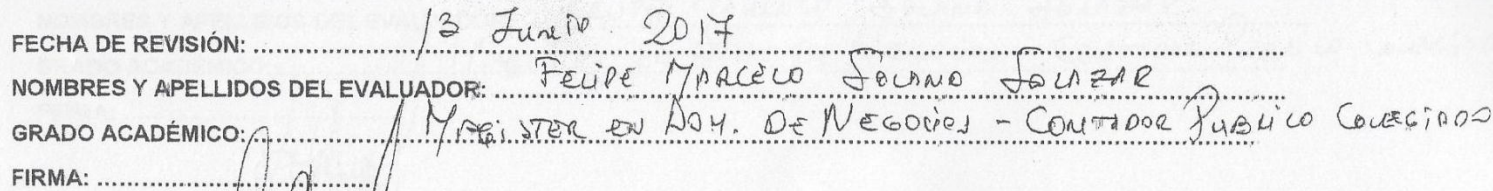 FECHA DE REVISIÓN: 13 Junio 2017
NOMBRES Y APELLIDOS DEL EVALUADOR: FELIPE MARCELO SOLANO SOLAZAR
GRADO ACADÉMICO: MAGISTER EN ADM. DE NEGOCIOS - CONTADOR PUBLICO COLEGIADO
FIRMA: